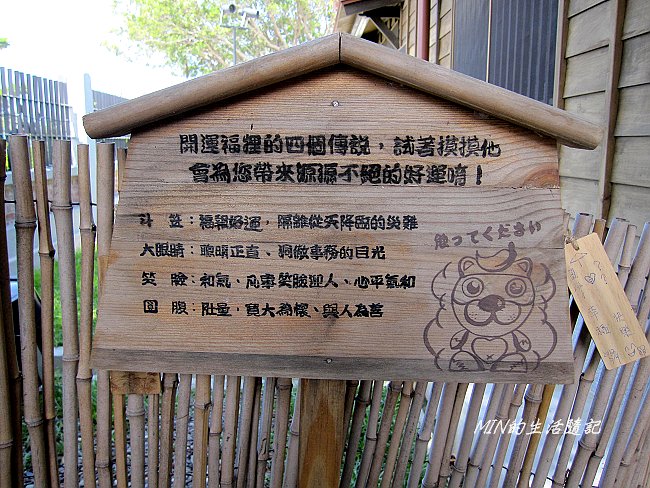 開運福狸的四個傳說，試著摸摸他
會為您帶來源源不絕的好運唷！
斗 笠：福報好運，隔離從天降臨的災難
大眼睛：聰明正直、洞做事務的目光
笑 臉：和氣、凡事笑臉迎人、心平氣和
圓 腹：肚量，寬大為懷、與人為善
触ってください
MIN的生活隨記